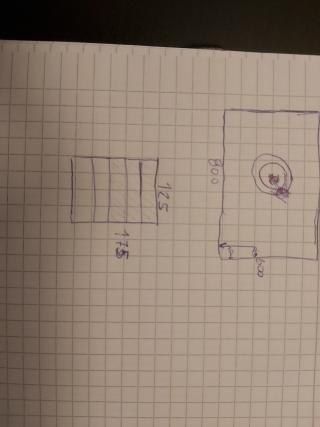 800
600
125
175